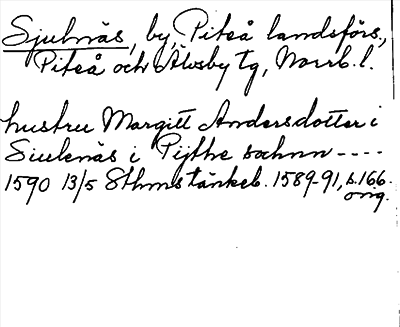 Sjulnäs, by, Piteå landsförs.,
Piteå och Älvsby tg, Norrb. l.
hustru Margitt Andersdotter i
Siulenäs i Pijthe sochnn ----
1590 13/5 Sthms tänkeb. 1589-91, s. 166.
orig.